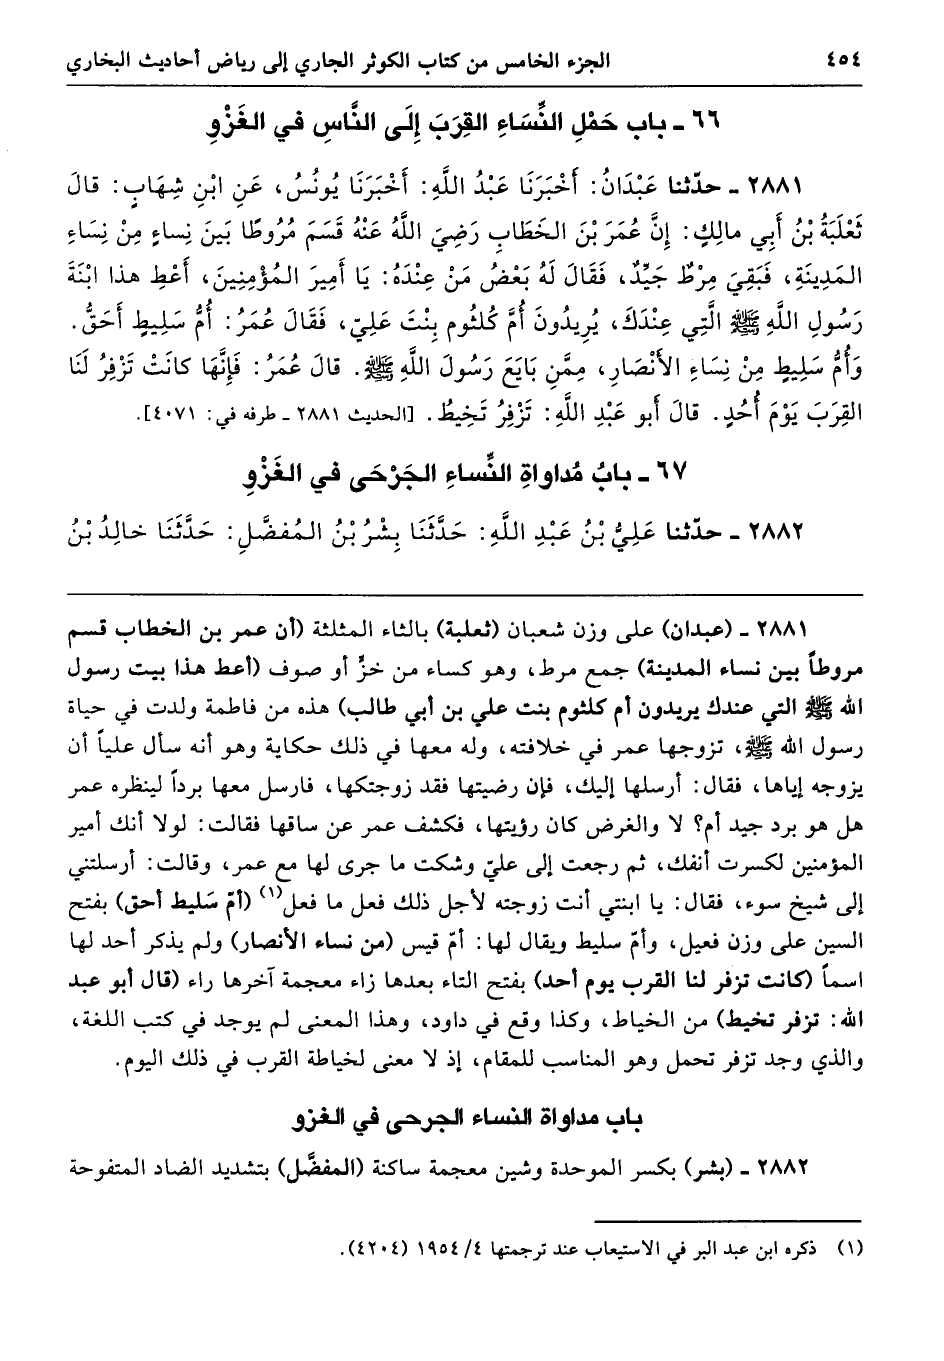 ٤٥٤ الجزء الخامس من كتاب الكوثر الجاري إلى رياض أحاديث البخاري
٦٦ ـ باب حَمْلِ النِّسَاءِ القِرَبَ إِلَى النَّاسِ في الغَزْوِ
٢٨٨١ ـ حدّثنا عَبْدَانُ: أَخْبَرَنَا عَبْدُ اللَّهِ: أَخْبَرَنَا يُونُسُ، عَنِ ابْنِ شِهَابٍ: قالَ
ثَعْلَبَةُ بْنُ أَبِي مالِكٍ: إِنَّ عُمَرَ بْنَ الخَطَّابِ رَضِيَ اللَّهُ عَنْهُ قَسَمَ مُرُوطًا بَينَ نِساءٍ مِنْ نِسَاءِ
المَدِينَةِ، فَبَقِيَ مِرْطٌ جَيِّدٌ، فَقَالَ لَهُ بَعْضُ مَنْ عِنْدَهُ: يَا أَمِيرَ المُؤْمِنِينَ، أَعْطِ هذا ابْنَةَ
رَسُولِ اللَّهِ ﷺ الَّتِي عِنْدَكَ، يُرِيدُونَ أُمَّ كُلثُومٍ بِنْتَ عَلِيّ، فَقَالَ عُمَرُ: أُمُّ سَلِيطٍ أَحَقُّ.
وَأُمُّ سَلِيطٍ مِنْ نِسَاءِ الأَنْصَارِ، مِمَّنْ بَايَعَ رَسُولَ اللَّهِ ﷺ. قالَ عُمَرُ: فَإِنَّهَا كانَتْ تَزْفِرُ لَنَا
القِرَبَ يَوْمَ أُحُدٍ. قالَ أَبو عَبْدِ اللَّهِ: تَزْفِرُ تَخِيطُ. [الحديث ٢٨٨١ ـ طرفه في: ٤٠٧١].
٦٧ ـ بابُ مُداواةِ النِّساءِ الجَرْحَى في الغَزْوِ
٢٨٨٢ ـ حدّثنا عَلِيُّ بْنُ عَبْدِ اللَّهِ: حَدَّثَنَا بِشْرُ بْنُ المُفضَّلِ: حَدَّثَنَا خالِدُ بْنُ
٢٨٨١ ـ (عبدان) على وزن شعبان (ثعلبة) بالثاء المثلثة (أن عمر بن الخطاب قسم
مروطاً بين نساء المدينة) جمع مرط، وهو كساء من خزٍّ أو صوف (أعط هذا بيت رسول
الله ﷺ التي عندك يريدون أم كلثوم بنت علي بن أبي طالب) هذه من فاطمة ولدت في حياة
رسول الله ﷺ، تزوجها عمر في خلافته، وله معها في ذلك حكاية وهو أنه سأل علياً أن
يزوجه إياها، فقال: أرسلها إليك، فإن رضيتها فقد زوجتكها، فارسل معها برداً لينظره عمر
هل هو برد جيد أم؟ لا والغرض كان رؤيتها، فكشف عمر عن ساقها فقالت: لولا أنك أمير
المؤمنين لكسرت أنفك، ثم رجعت إلى عليّ وشكت ما جرى لها مع عمر، وقالت: أرسلتني
إلى شيخ سوء، فقال: يا ابنتي أنت زوجته لأجل ذلك فعل ما فعل(١) (أمّ سَليط أحق) بفتح
السين على وزن فعيل، وأمّ سليط ويقال لها: أمّ قيس (من نساء الأنصار) ولم يذكر أحد لها
اسماً (كانت تزفر لنا القرب يوم أحد) بفتح التاء بعدها زاء معجمة آخرها راء (قال أبو عبد
الله: تزفر تخيط) من الخياط، وكذا وقع في داود، وهذا المعنى لم يوجد في كتب اللغة،
والذي وجد تزفر تحمل وهو المناسب للمقام، إذ لا معنى لخياطة القرب في ذلك اليوم.
باب مداواة النساء الجرحى في الغزو
٢٨٨٢ ـ (بشر) بكسر الموحدة وشين معجمة ساكنة (المفضَّل) بتشديد الضاد المتفوحة
(١) ذكره ابن عبد البر في الاستيعاب عند ترجمتها ٤/ ١٩٥٤ (٤٢٠٤).